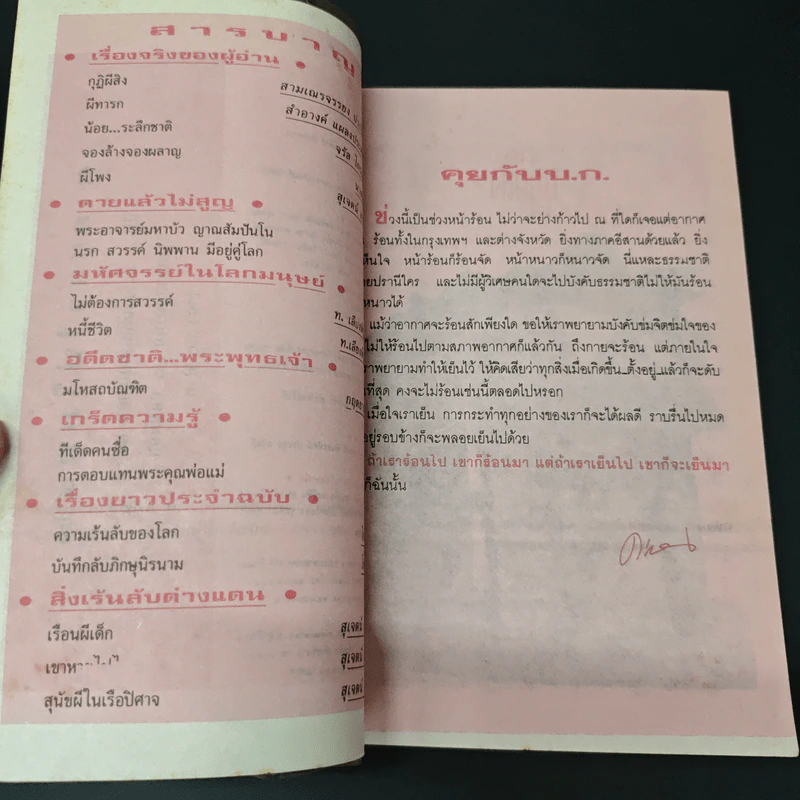 สารบาญ
● เรื่องจริงของผู้อ่าน ●
กุฏิผีสิง
สามเณรจรรยง
ผีทารก
สำอางค์ แผลงประ
น้อย...ระลึกชาติ
จรัล
จองล้างจองผลาญ
ผีโพง
สุเจตน์
● ตายแล้วไม่สูญ ●
พระอาจารย์มหาบัว ญาณสัมปันโน
นรก สวรรค์ นิพพาน มีอยู่คู่โลก
● มหัศจรรย์ในโลกมนุษย์ ●
ไม่ต้องการสวรรค์
ท. เลีย
หนี้ชีวิต
ท.เลีย
● อดีตชาติ...พระพุทธเจ้า ●
มโหสถบัณฑิต
● เกร็ดความรู้ ●
ทีเด็ดคนซื่อ
การตอบแทนพระคุณพ่อแม่
● เรื่องยาวประจำฉบับ ●
ความเร้นลับของโลก
บันทึกลับภิกษุนิรนาม
● สิ่งเร้นลับต่างแดน ●
เรือนผีเด็ก
สุเจตน์
สุเจตน์
สุนัขผีในเรือปิศาจ
สุเจตน์
คุยกับบ.ก.
ช่วงนี้เป็นช่วงหน้าร้อน ไม่ว่าจะย่างก้าวไป ณ ที่ใดก็เจอแต่อากาศ
ร้อนทั้งในกรุงเทพฯ และต่างจังหวัด ยิ่งทางภาคอีสานด้วยแล้ว ยิ่ง
เห็นใจ หน้าร้อนก็ร้อนจัด หน้าหนาวก็หนาวจัด นี่แหละธรรมชาติ
ยปรานีใคร และไม่มีผู้วิเศษคนใดจะไปบังคับธรรมชาติไม่ให้มันร้อน
หนาวได้
แม้ว่าอากาศจะร้อนสักเพียงใด ขอให้เราพยายามบังคับข่มจิตข่มใจของ
ไม่ให้ร้อนไปตามสภาพอากาศก็แล้วกัน ถึงกายจะร้อน แต่ภายในใจ
ราพยายามทำให้เย็นไว้ ให้คิดเสียว่าทุกสิ่งเมื่อเกิดขึ้น...ตั้งอยู่...แล้วก็จะดับ
ที่สุด คงจะไม่ร้อนเช่นนี้ตลอดไปหรอก
เมื่อใจเราเย็น การกระทำทุกอย่างของเราก็จะได้ผลดี ราบรื่นไปหมด
อยู่รอบข้างก็จะพลอยเย็นไปด้วย
ถ้าเราร้อนไป เขาก็ร้อนมา แต่ถ้าเราเย็นไป เขาก็จะเย็นมา
ก็ฉันนั้น